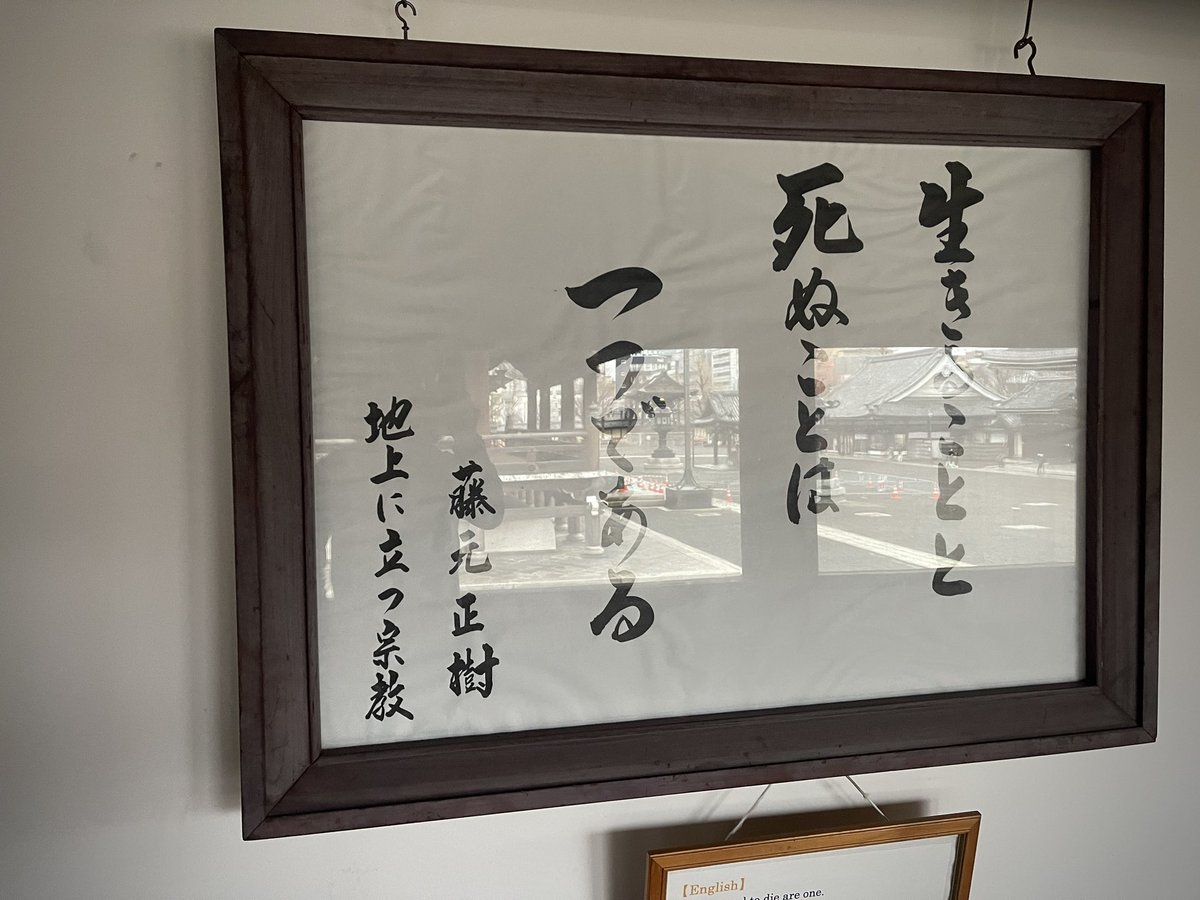 生きることと
死ぬことは
一つである
藤元正樹
地上に立つ宗教
【English】
to die are one.